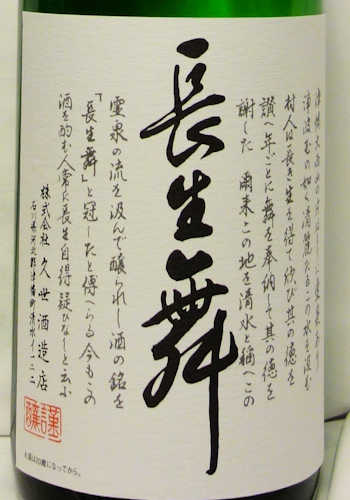 村人は長き生を得て悦び其の徳を
讃へ年ごとに舞を奉納して其の徳を
謝した 爾来この地を清水と稱へこの
長生舞
霊泉の流を汲んで醸られし酒の銘を
「長生舞」と冠したと傳へらる今もこの
酒を酌む人常に長生自得疑ひなしと云ふ
株式会社 久世酒造店
石川県河北郡津幡町清水イ一二二
謹醸
お酒は20歳になってから。